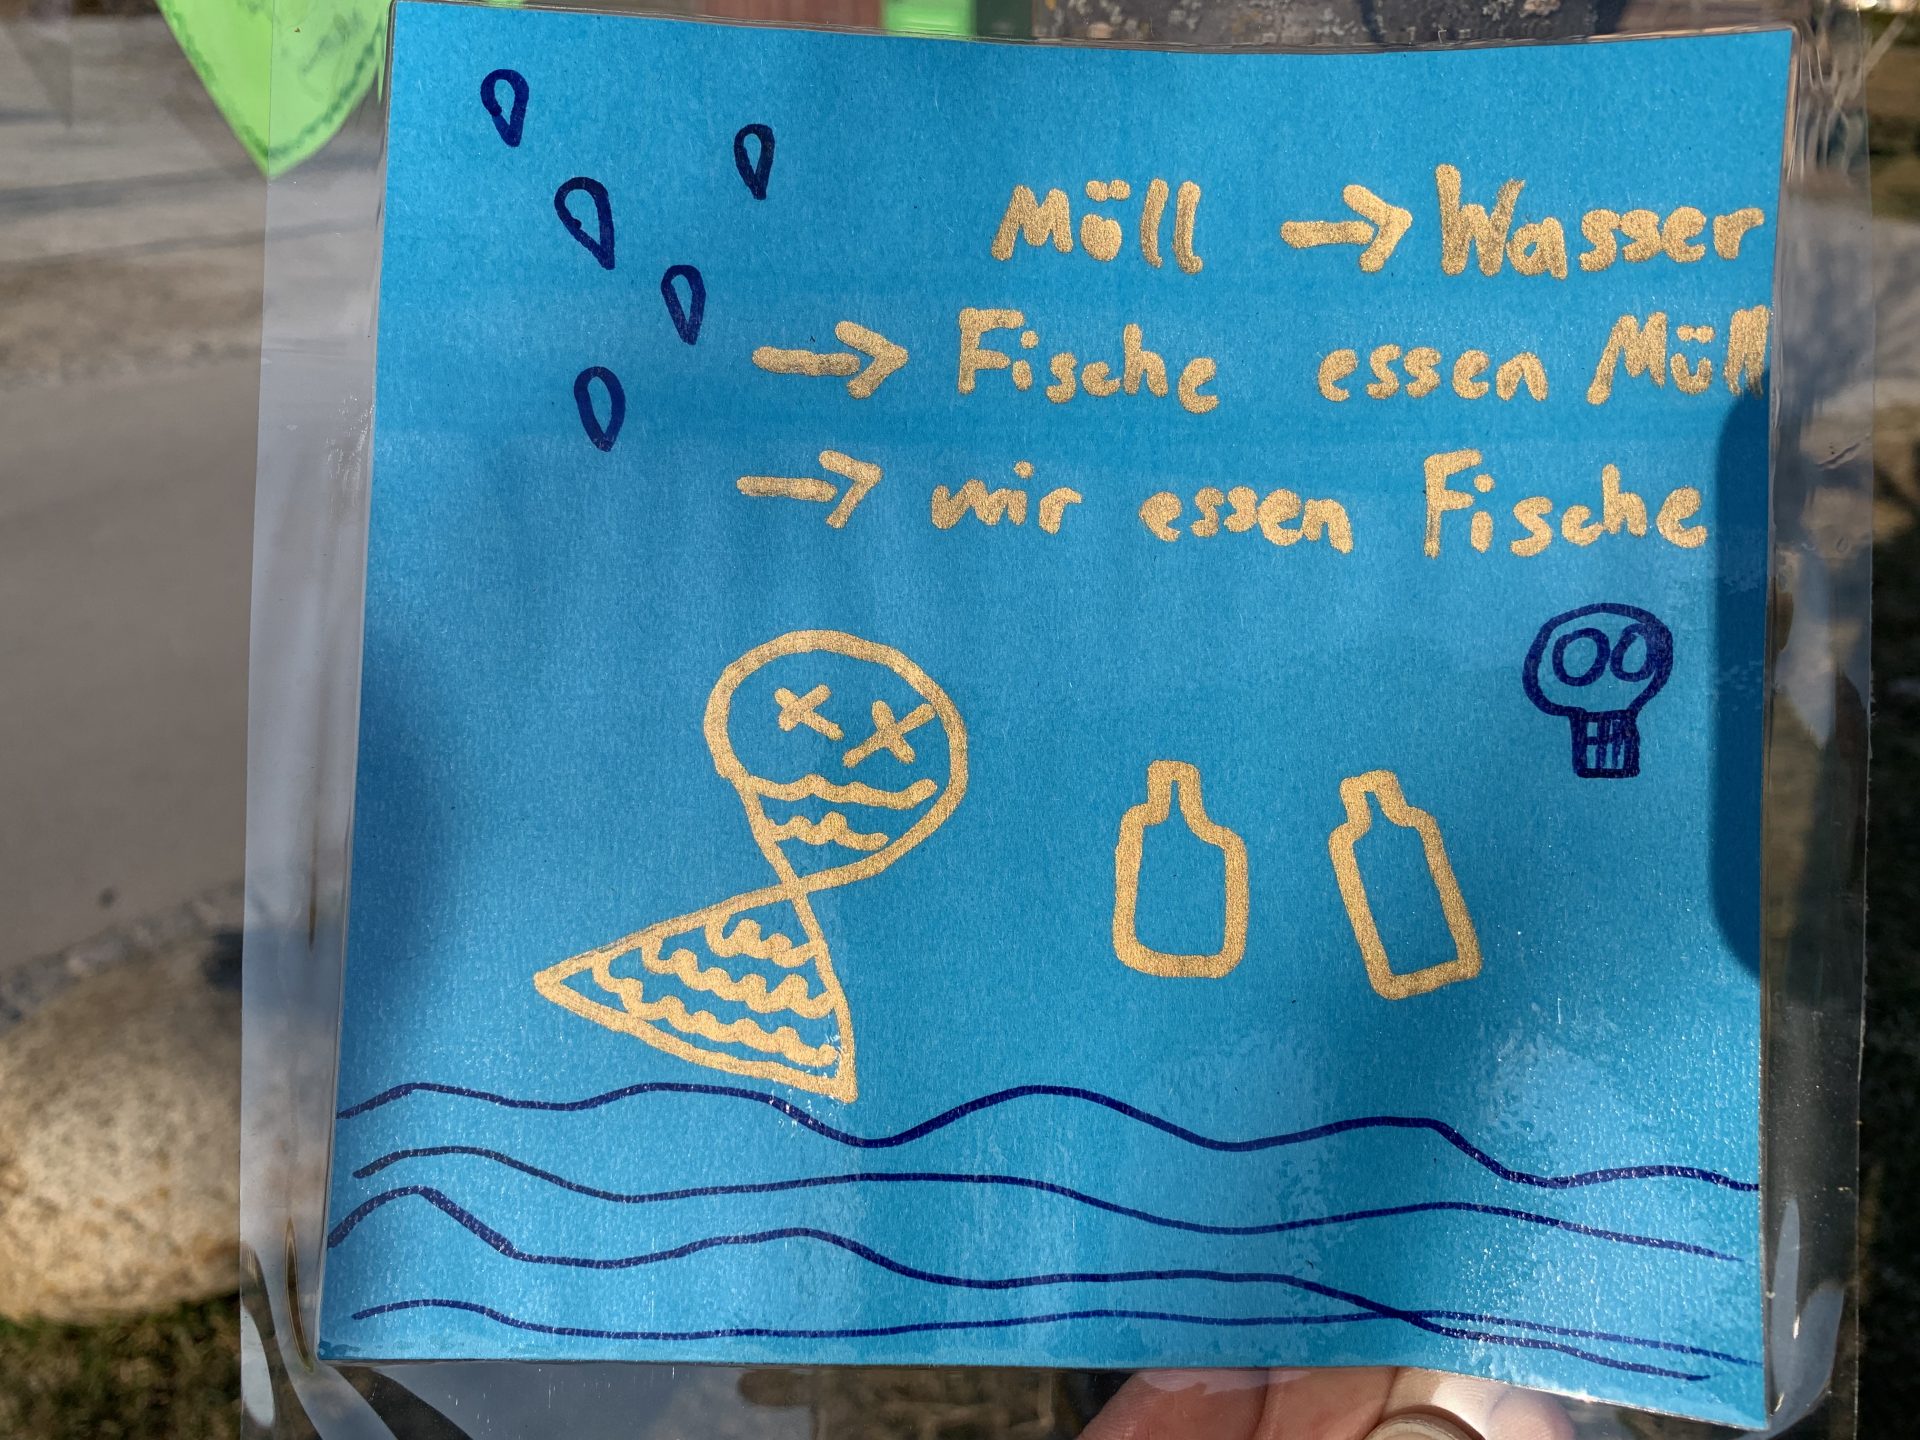 Müll → Wasser
→ Fische essen Müll
→ wir essen Fische